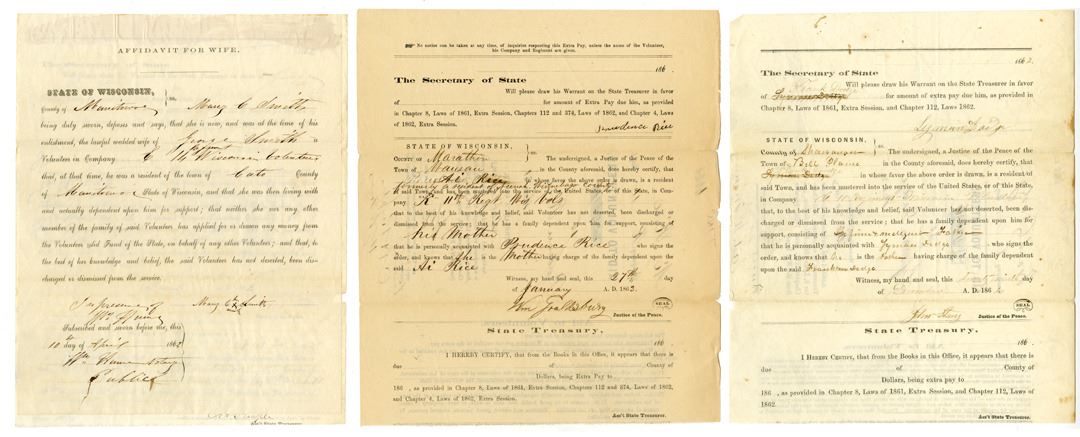 AFFIDAVIT FOR WIFE.
STATE OF WISCONSIN, } ss.
County of Manitowoc Mary C Smith
being duly sworn, deposes and says, that she is now, and was at the time of his
enlistment, the lawful wedded wife of George Smith a
Volunteer in Company Wisconsin Volunteers
that, at said time, he was a resident of the town of Cato County
of Manitowoc State of Wisconsin, and that she was then living with
and actually dependent upon him for support; that neither she nor any other
member of the family of said Volunteer has applied for or drawn any money from
the Volunteer Aid Fund of the State, on behalf of any other Volunteer; and that, to
the best of her knowledge and belief, the said Volunteer has not deserted, been dis-
charged or dismissed from the service.
In presence of Mary C Smith
Subscribed and sworn before me, this
10th day of April 1862
Public
No notice can be taken at any time, of inquiries respecting this Extra Pay, unless the name of the Volunteer,
his Company and Regiment are given.
186 .
The Secretary of State
Will please draw his Warrant on the State Treasurer in favor
of for amount of Extra Pay due him, as provided in
Chapter 8, Laws of 1861, Extra Session, Chapters 112 and 374, Laws of 1862, and Chapter 4, Laws
of 1862, Extra Session.
Prudence Rice
STATE OF WISCONSIN, } ss.
County of Marathon
Town of Wausau The undersigned, a Justice of the Peace of
the County aforesaid, does hereby certify, that
Ai Rice in whose favor the above order is drawn, is a resident
formerly a resident of County
of said Town, and has been mustered into the service of the United States, or of this State, in Com-
pany K 11th Regt Wis Vols
that to the best of his knowledge and belief, said Volunteer has not deserted, been discharged
or dismissed from the service; that he has a family dependent upon him for support, consisting of
his Mother
that he is personally acquainted with Prudence Rice who signs the
order, and knows that she is the Mother having charge of the family dependent upon the
said Ai Rice
Witness, my hand and seal, this 27th day
of January A. D. 1863.
SEAL
Justice of the Peace.
State Treasury,
186 .
I HEREBY CERTIFY, that from the Books in this Office, it appears that there is
due of County of
Dollars, being Extra Pay to
186 , as provided in Chapter 8, Laws of 1861, Extra Session, Chapters 112 and 374, Laws of 1862,
and Chapter 4, Laws of 1862, Extra Session.
Ass't State Treasurer.
1862.
The Secretary of State
Will please draw his Warrant on the State Treasurer in favor
of for amount of Extra Pay due him, as provided in
Chapter 8, Laws of 1861, Extra Session, and Chapter 112, Laws 1862.
Lyman Dodge
STATE OF WISCONSIN, } ss.
County of Shawano
Town of Bell Plaine The undersigned, a Justice of the Peace
in the County aforesaid, do hereby certify, that
Lyman Dodge in whose favor the above order is drawn, is a resident of
said Town, and has been mustered into the service of the United States, or of this State,
in Company
that, to the best of his knowledge and belief, said Volunteer has not deserted, been dis-
charged or dismissed from the service; that he has a family dependent upon him for
support, consisting of Father
that he is personally acquainted with Lyman Dodge who signs the
order, and knows that he is the Father having charge of the family dependent
upon the said Franklin Dodge
Witness, my hand and seal, this day
of A. D. 186
SEAL
Justice of the Peace.
State Treasury,
186 .
I HEREBY CERTIFY, that from the Books in this Office, it appears that there is
due of County of
Dollars, being extra pay to
186 , as provided in Chapter 8, Laws of 1861, Extra Session, and Chapter 112, Laws of
1862.
Ass't State Treasurer.